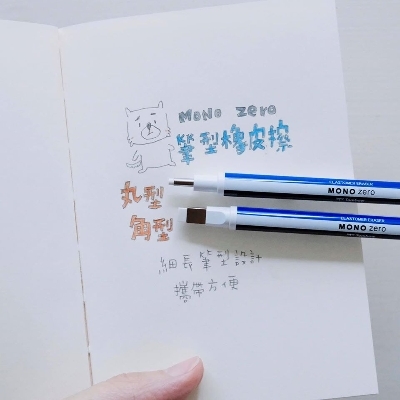 MONO zero
筆型橡皮擦
丸型
角型
ELASTOMER ERASER
MONO zero
ELASTOMER ERASER
MONO zero
細長筆型設計
攜帶方便